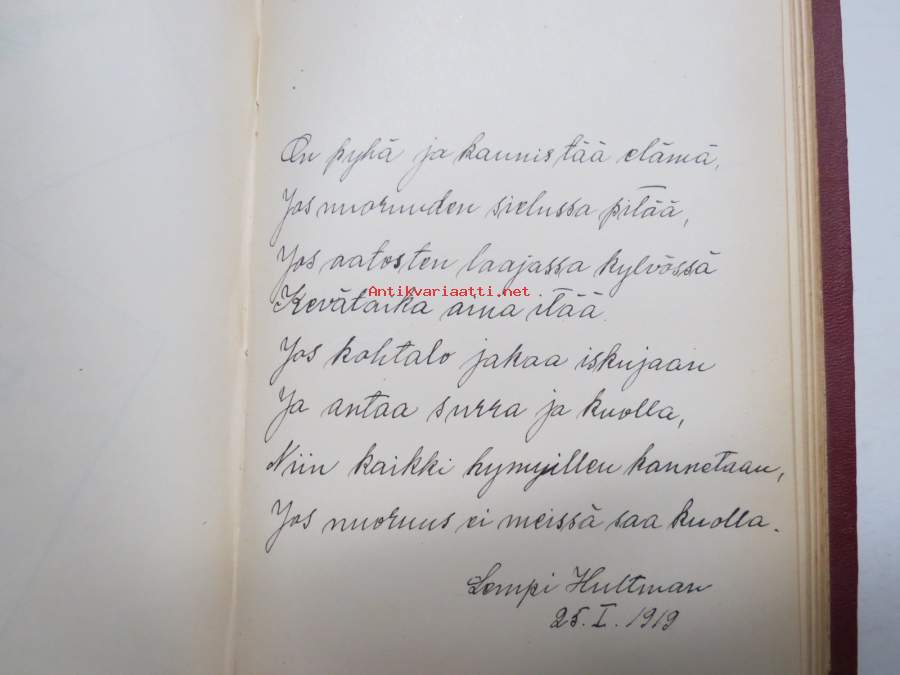 On pyhä ja kaunis tää elämä,
Jos nuoruuden sielussa pitää,
Jos aatosten laajassa kylvössä
Antikvariaatti.net
Kevätaika aina itää.
Jos kohtalo jakaa iskujaan
Ja antaa surra ja kuolla,
Niin kaikki hymyillen kannetaan,
Jos nuoruus ei meissä saa kuolla.
Lempi Hultman
25. I. 1919